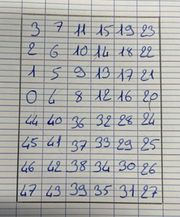 3 7 11 15 19 23
2 6 10 14 18 22
1 5 9 13 17 21
0 4 8 12 16 20
44 40 36 32 28 24
45 41 37 33 29 25
46 42 38 34 30 26
47 43 39 35 31 27